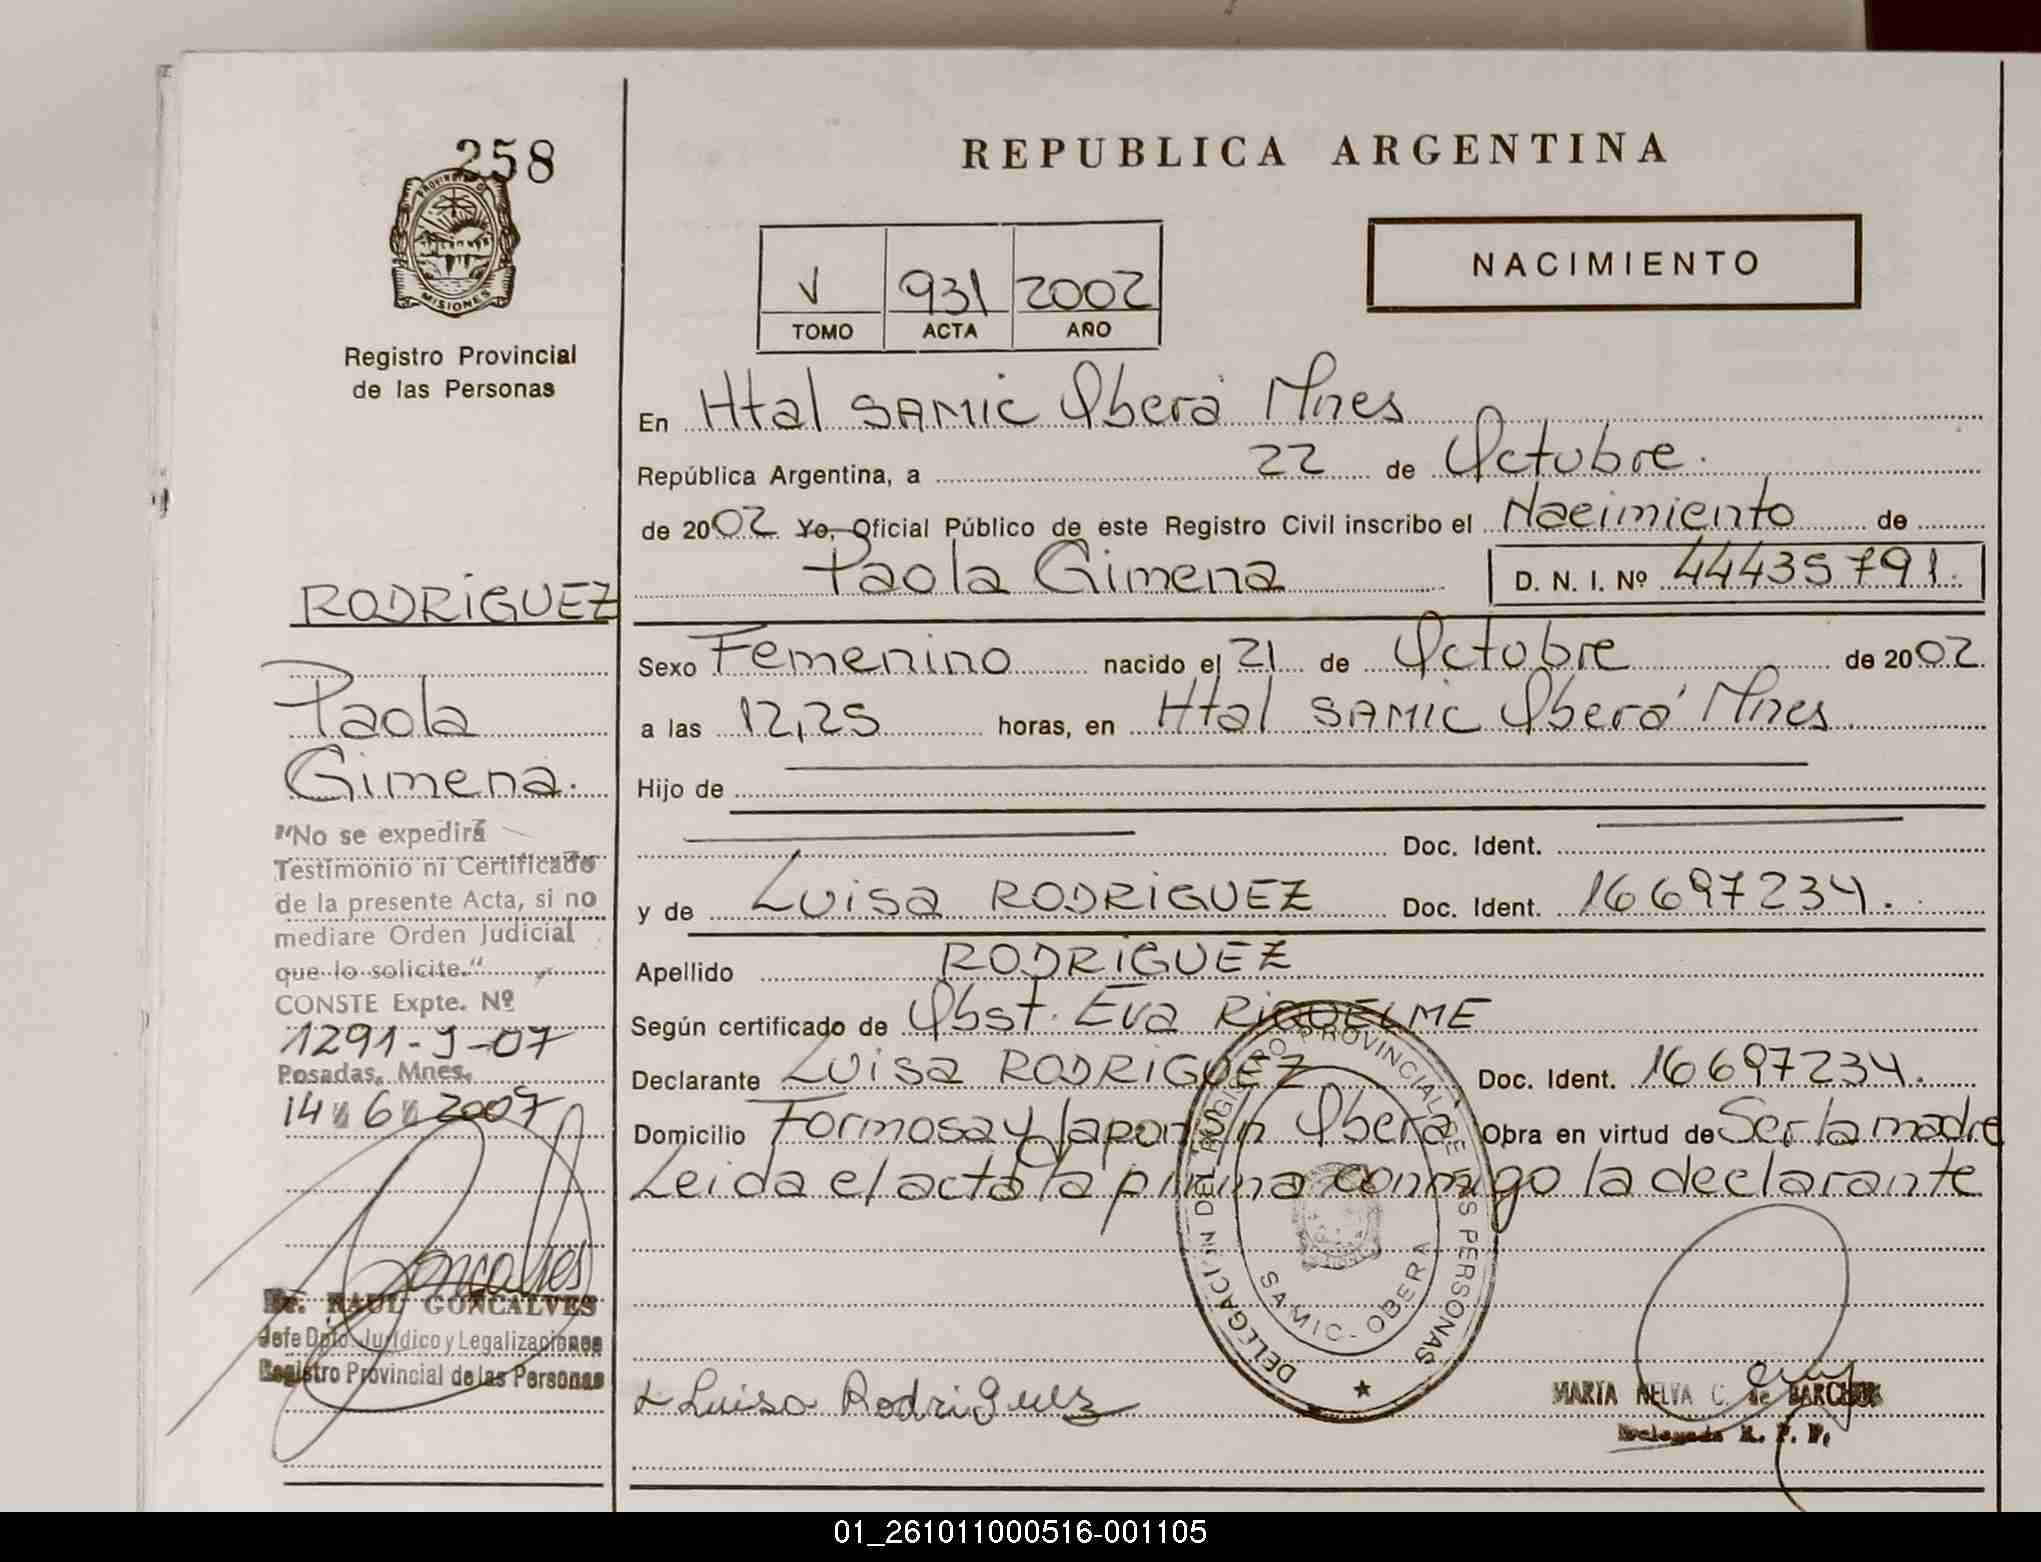 258
PROVINCIA DE
MISIONES
Registro Provincial
de las Personas
REPUBLICA ARGENTINA
NACIMIENTO
V 931 2002
TOMO ACTA AÑO
En Htal SAMIC Oberá Mnes
República Argentina, a 22 de Octubre.
de 2002 Yo, Oficial Público de este Registro Civil inscribo el Nacimiento de
Paola Gimena D. N. I. Nº 44435791.
Sexo Femenino nacido el 21 de Octubre de 2002.
a las 12,25 horas, en Htal SAMIC Oberá Mnes.
Hijo de
Doc. Ident.
y de Luisa RODRIGUEZ Doc. Ident. 16697234.
Apellido RODRIGUEZ
Según certificado de Obst. Eva RIQUELME
Declarante Luisa RODRIGUEZ Doc. Ident. 16697234.
Domicilio Formosa y Japon S/n Oberá Obra en virtud de Ser la madre
Leida el acta la firma conmigo la declarante
Luisa Rodriguez
DELEGACION DEL REGISTRO PROVINCIAL DE LAS PERSONAS
SAMIC - OBERA
MARTA NELVA C. de
Delegada R. P. P.
RODRIGUEZ
Paola
Gimena.
"No se expedirá
Testimonio ni Certificado
de la presente Acta, si no
mediare Orden Judicial
que lo solicite."
CONSTE Expte. Nº
1291-J-07
Posadas, Mnes.
14 6 2007
Goncalves
Dr. RAUL GONCALVES
Jefe Dpto. Jurídico y Legalizaciones
Registro Provincial de las Personas
01_261011000516-001105